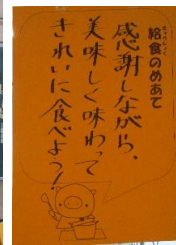 給食のめあて
感謝しながら、
美味しく味わって
きれいに食べよう！